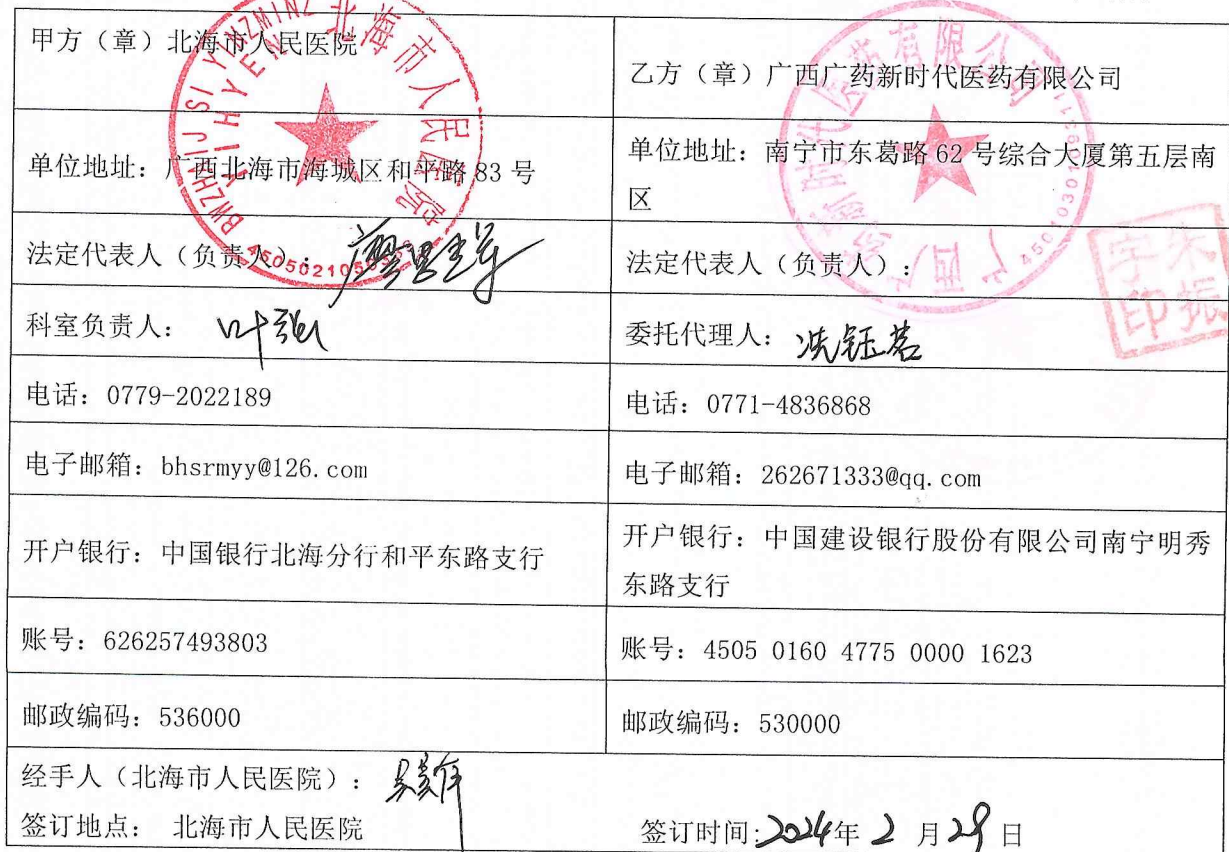 甲方（章）北海市人民医院
乙方（章）广西广药新时代医药有限公司
单位地址：广西北海市海城区和平路 83 号
单位地址：南宁市东葛路 62 号综合大厦第五层南
区
法定代表人（负责人）：
法定代表人（负责人）：
科室负责人： 叶强
委托代理人：冼钰茗
电话：0779-2022189
电话：0771-4836868
电子邮箱：bhsrmyy@126.com
电子邮箱：262671333@qq.com
开户银行：中国银行北海分行和平东路支行
开户银行：中国建设银行股份有限公司南宁明秀
东路支行
账号：626257493803
账号：4505 0160 4775 0000 1623
邮政编码：536000
邮政编码：530000
经手人（北海市人民医院）：
签订地点： 北海市人民医院
签订时间:2024年 2 月 29 日
BWZHAIJ SI YINZMINZ YIHYEN
北海市人民医院
广西广药新时代医药有限公司
朱振宇印